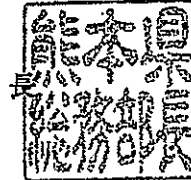 長
熊本県
総務部長